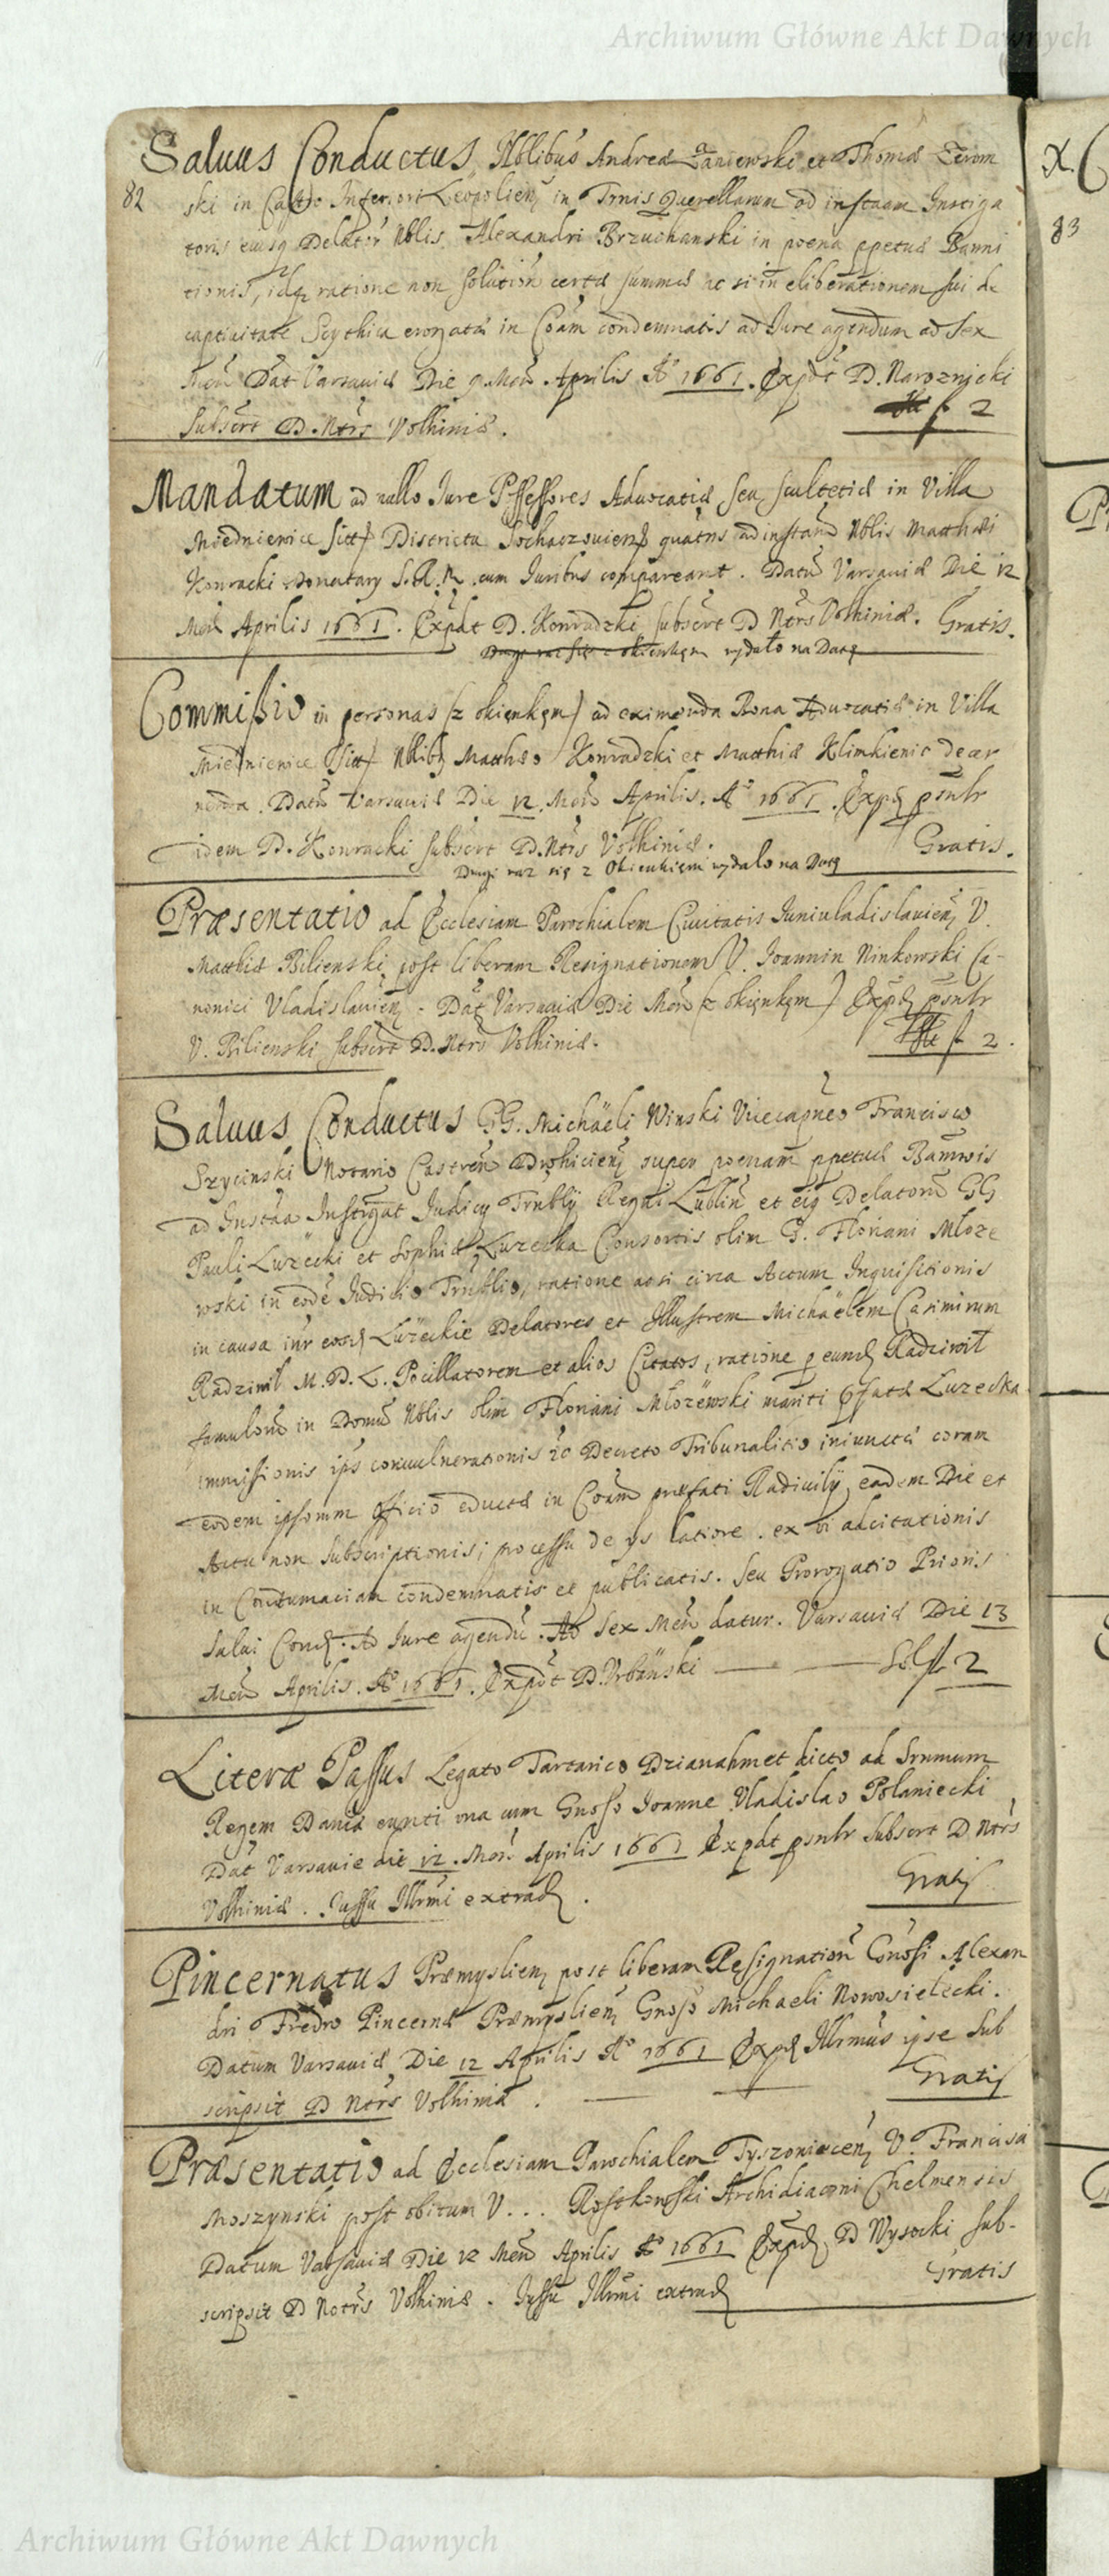 Archiwum Główne Akt Dawnych
Saluus Conductus Nblibus Andreæ Zaniewski et Thomæ Zerom
82 ski in Castro Inferiori Leopolien in Trnis Querellarum ad instaam Instiga
toris eiusq Delator Nblis Alexandri Brzuchanski in poena ppetuæ Banni
tionis, idq ratione non solution certæ summæ ac si in eliberationem sui de
captiuitate Scythica erogatæ in Coam condemnatis ad Iure agendum ad Sex
Men Dat Varsauiæ Die 9 Men Aprilis Ao 1661. Expdt D. Naroznicki
f 2
Subscrt D. Ntrs Volhiniæ.
Mandatum ad nullo Iure Pssessores Aduocatiæ seu scultetiæ in Villa
Miednienice sitt Districtu Sochaczouien quatns ad instam Nblis Matthæi
Konracki Donatary S. R. M. cum Iuribus compareant. Datu Varsauiæ Die 12
Men Aprilis 1661. Expdt D. Konradzki subscrt D Ntrs Volhiniæ. Gratis.
Drugi raz się z okienkiem wydało na Datę
Commissio in personas (z okięnkęm) ad eximenda Bona Aduocatiæ in Villa
Miednienice sitt Nblib Matthæo Konradzki et Matthiæ Klimkienic de ar
nenda. Datu Varsauiæ Die 12 Men Aprilis. Ao 1661. Expd psntr
idem D. Konracki subscrt D. Ntrs Volhiniæ.
Gratis.
Drugi raz się z Okienkięm wydało na Datę
Præsentatio ad Ecclesiam Parochialem Ciuitatis Iuniuladislauien V.
Matthiæ Bilienski post liberam Resignationem V. Joannin Ninkowski Ca-
nonici Vladislauien. Dat Varsauiæ Die Men (z okięnkęm) Expd psntr
V. Bilienski subscrt D. Ntrs Volhiniæ.
f 2.
Saluus Conductus GG. Michaëli Winski Vicecapneo Francisco
Szycinski Notario Castren Drohicien super poenam ppetuæ Bannois
ad Instaa Instigat Judicy Trnbly Regni Lublin et eiq Delatoru GG
Pauli Luzëcki et Sophiæ Luzecka Consortis olim G. Floriani Mloze
wski in eode Judicio Trnblio, ratione acsi circa Actum Inquisitionis
in causa intr eosd Luzëckie Delatores et Illustrem Michaëlem Casimirum
Radziwil M. D. L. Pocillatorem et alios Citatos, ratione p eund Radziwił
famulorũ in Domũ Nblis olim Floriani Mlozëwski mariti Psfatæ Luzecka
immissionis ips conuulnerationis ex Decreto Tribunalitio iniunctæ coram
eodem ipsomm Officio eductæ in Coam præfati Radiuily, eadem Die et
Actu non subscriptionis; processu de ys latiore. ex vi adcitationis
in Contumaciam condemnatis et publicatis. Seu Prorogatio Prioris
Salui Cond. Ad Iure agendu. Ad Sex Men datur. Varsauiæ Die 13
Men Aprilis. Ao 1661. Expdt D. Vrbański Sol f 2
Literæ Passus Legato Tartarico Dzianahmet dicto ad Srnmum
Regem Daniæ eunti vna cum Gnoso Ioanne Vladislao Polaniecki
Dat Varsauie die 12. Men Aprilis 1661 Expdt psntr Subscrt D Ntrs
Volhiniæ. Jussu Illrmi extrad.
Gratis
Pincernatus Præmyslien post liberam Resignation Gnosi Alexan
dri Fredro Pincernæ Præmyslien Gnoso Michaeli Nowosielecki.
Datum Varsauiæ Die 12 Aprilis Ao 1661 Expd Illrmus ipse Sub
scripsit D Ntrs Volhiniæ.
Gratis
Præsentatio ad Ecclesiam Parochialem Tyszouiecen V. Francisci
Moszynski post obitum V... Rostkowski Archidiaconi Chelmensis
Datum Varsauiæ Die 12 Men Aprilis Ao 1661 Expd D Wysocki sub-
scripsit D Notrs Volhiniæ. Iussu Illrmi extrad
Gratis
83
Archiwum Główne Akt Dawnych